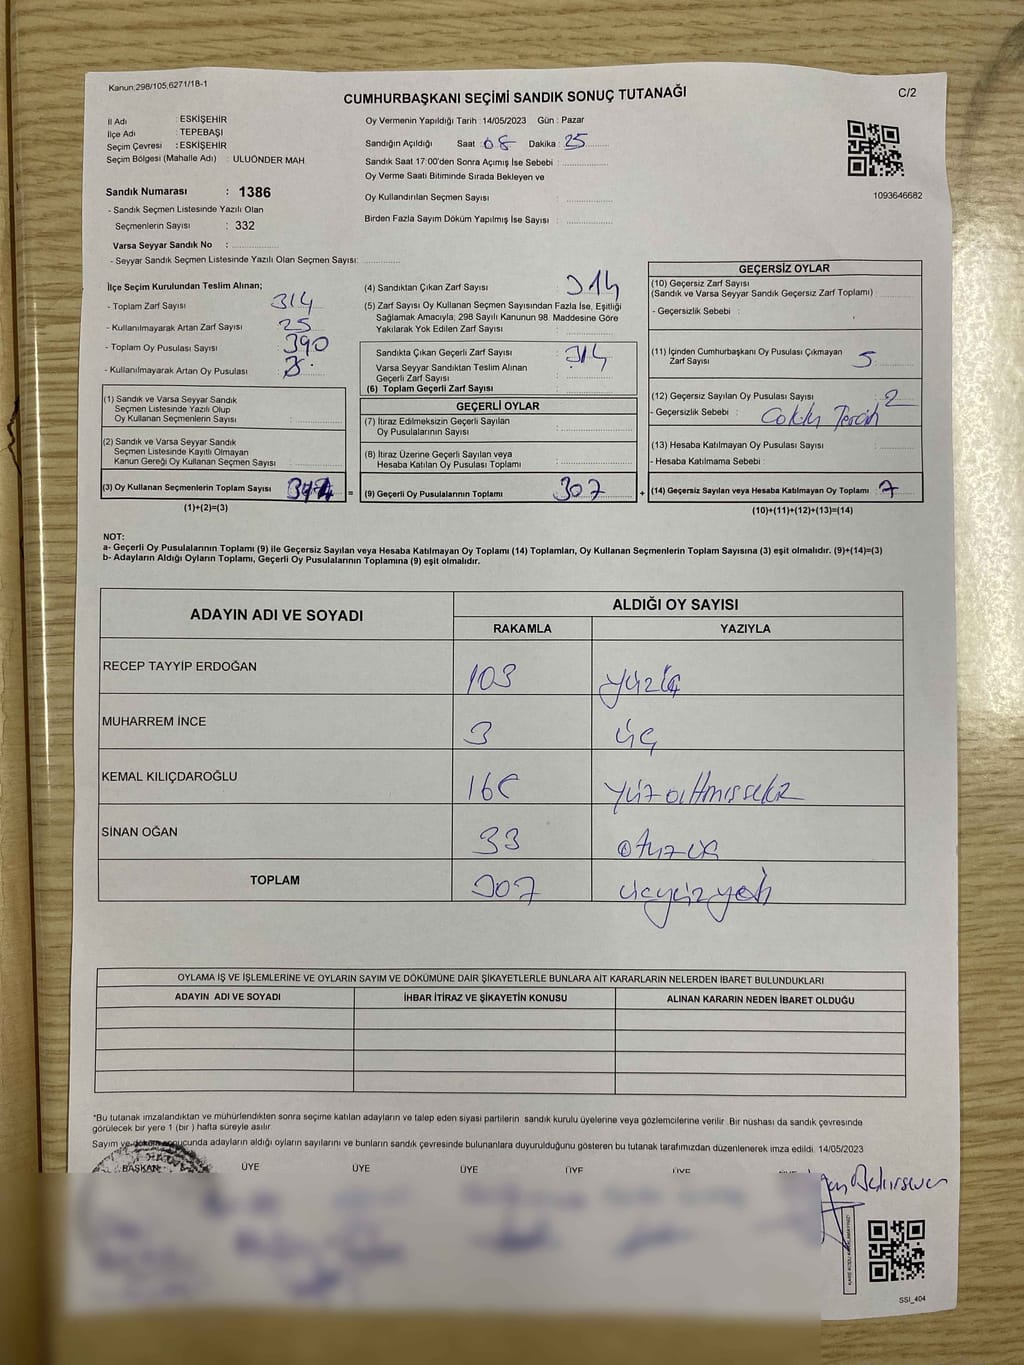 Kanun;298/105,6271/18-1
CUMHURBAŞKANI SEÇİMİ SANDIK SONUÇ TUTANAĞI
C/2
İl Adı : ESKİŞEHİR
İlçe Adı : TEPEBAŞI
Seçim Çevresi : ESKİŞEHİR
Seçim Bölgesi (Mahalle Adı) : ULUÖNDER MAH
Sandık Numarası : 1386
- Sandık Seçmen Listesinde Yazılı Olan
Seçmenlerin Sayısı : 332
Varsa Seyyar Sandık No :
- Seyyar Sandık Seçmen Listesinde Yazılı Olan Seçmen Sayısı:
Oy Vermenin Yapıldığı Tarih : 14/05/2023 Gün : Pazar
Sandığın Açıldığı Saat : 08 Dakika : 25
Sandık Saat 17:00'den Sonra Açımış İse Sebebi :
Oy Verme Saati Bitiminde Sırada Bekleyen ve
Oy Kullandırılan Seçmen Sayısı :
Birden Fazla Sayım Döküm Yapılmış İse Sayısı :
1093646682
İlçe Seçim Kurulundan Teslim Alınan;
- Toplam Zarf Sayısı : 314
- Kullanılmayarak Artan Zarf Sayısı : 25
- Toplam Oy Pusulası Sayısı : 390
- Kullanılmayarak Artan Oy Pusulası :
(1) Sandık ve Varsa Seyyar Sandık
Seçmen Listesinde Yazılı Olup
Oy Kullanan Seçmenlerin Sayısı :
(2) Sandık ve Varsa Seyyar Sandık
Seçmen Listesinde Kayıtlı Olmayan
Kanun Gereği Oy Kullanan Seçmen Sayısı :
(3) Oy Kullanan Seçmenlerin Toplam Sayısı : 314 =
(1)+(2)=(3)
(4) Sandıktan Çıkan Zarf Sayısı : 314
(5) Zarf Sayısı Oy Kullanan Seçmen Sayısından Fazla İse, Eşitliği
Sağlamak Amacıyla; 298 Sayılı Kanunun 98. Maddesine Göre
Yakılarak Yok Edilen Zarf Sayısı :
Sandıkta Çıkan Geçerli Zarf Sayısı : 314
Varsa Seyyar Sandıktan Teslim Alınan
Geçerli Zarf Sayısı :
(6) Toplam Geçerli Zarf Sayısı :
GEÇERLİ OYLAR
(7) İtiraz Edilmeksizin Geçerli Sayılan
Oy Pusulalarının Sayısı :
(8) İtiraz Üzerine Geçerli Sayılan veya
Hesaba Katılan Oy Pusulası Toplamı :
(9) Geçerli Oy Pusulalarının Toplamı : 307 +
GEÇERSİZ OYLAR
(10) Geçersiz Zarf Sayısı
(Sandık ve Varsa Seyyar Sandık Geçersiz Zarf Toplamı) :
- Geçersizlik Sebebi :
(11) İçinden Cumhurbaşkanı Oy Pusulası Çıkmayan
Zarf Sayısı : 5
(12) Geçersiz Sayılan Oy Pusulası Sayısı : 2
- Geçersizlik Sebebi : Çoklu Tercih
(13) Hesaba Katılmayan Oy Pusulası Sayısı :
- Hesaba Katılmama Sebebi :
(14) Geçersiz Sayılan veya Hesaba Katılmayan Oy Toplamı : 7
(10)+(11)+(12)+(13)=(14)
NOT:
a- Geçerli Oy Pusulalarının Toplamı (9) ile Geçersiz Sayılan veya Hesaba Katılmayan Oy Toplamı (14) Toplamları, Oy Kullanan Seçmenlerin Toplam Sayısına (3) eşit olmalıdır. (9)+(14)=(3)
b- Adayların Aldığı Oyların Toplamı, Geçerli Oy Pusulalarının Toplamına (9) eşit olmalıdır.
ADAYIN ADI VE SOYADI
ALDIĞI OY SAYISI
RAKAMLA YAZIYLA
RECEP TAYYİP ERDOĞAN 103 yüzüç
MUHARREM İNCE 3 üç
KEMAL KILIÇDAROĞLU 168 yüzaltmışsekiz
SİNAN OĞAN 33 otuzüç
TOPLAM 307 üçyüzyedi
OYLAMA İŞ VE İŞLEMLERİNE VE OYLARIN SAYIM VE DÖKÜMÜNE DAİR ŞİKAYETLERLE BUNLARA AİT KARARLARIN NELERDEN İBARET BULUNDUKLARI
ADAYIN ADI VE SOYADI İHBAR İTİRAZ VE ŞİKAYETİN KONUSU ALINAN KARARIN NEDEN İBARET OLDUĞU
*Bu tutanak imzalandıktan ve mühürlendikten sonra seçime katılan adayların ve talep eden siyasi partilerin sandık kurulu üyelerine veya gözlemcilerine verilir. Bir nüshası da sandık çevresinde
görülecek bir yere 1 (bir ) hafta süreyle asılır.
Sayım ve döküm sonucunda adayların aldığı oyların sayılarını ve bunların sandık çevresinde bulunanlara duyurulduğunu gösteren bu tutanak tarafımızdan düzenlenerek imza edildi. 14/05/2023
BAŞKAN ÜYE ÜYE ÜYE ÜYE ÜYE
SSI_404